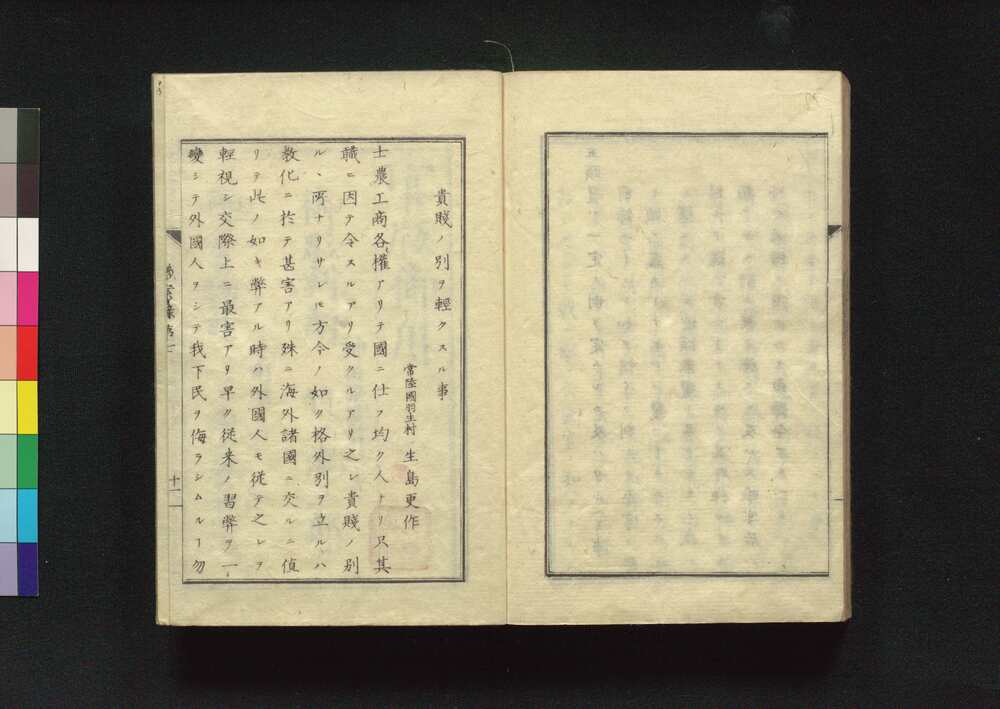 貴賤ノ別ヲ輕クスル事
常陸國羽生村 生島更作
士農工商各權アリテ國ニ仕フ均ク人ナリ只其
職ニ因テ令スルアリ受クルアリ之レ貴賤ノ別
ル丶所ナリサレ𪜈方今ノ如ク格外別ヲ立ルハ
教化ニ於テ甚害アリ殊ニ海外諸國ニ交ルニ値
リテ此ノ如キ弊アル時ハ外國人モ從テ之レヲ
輕視シ交際上ニ最害アリ早ク従来ノ習弊ヲ一
變シテ外國人ヲシテ我下民ヲ侮ラシムルヿ勿
十一